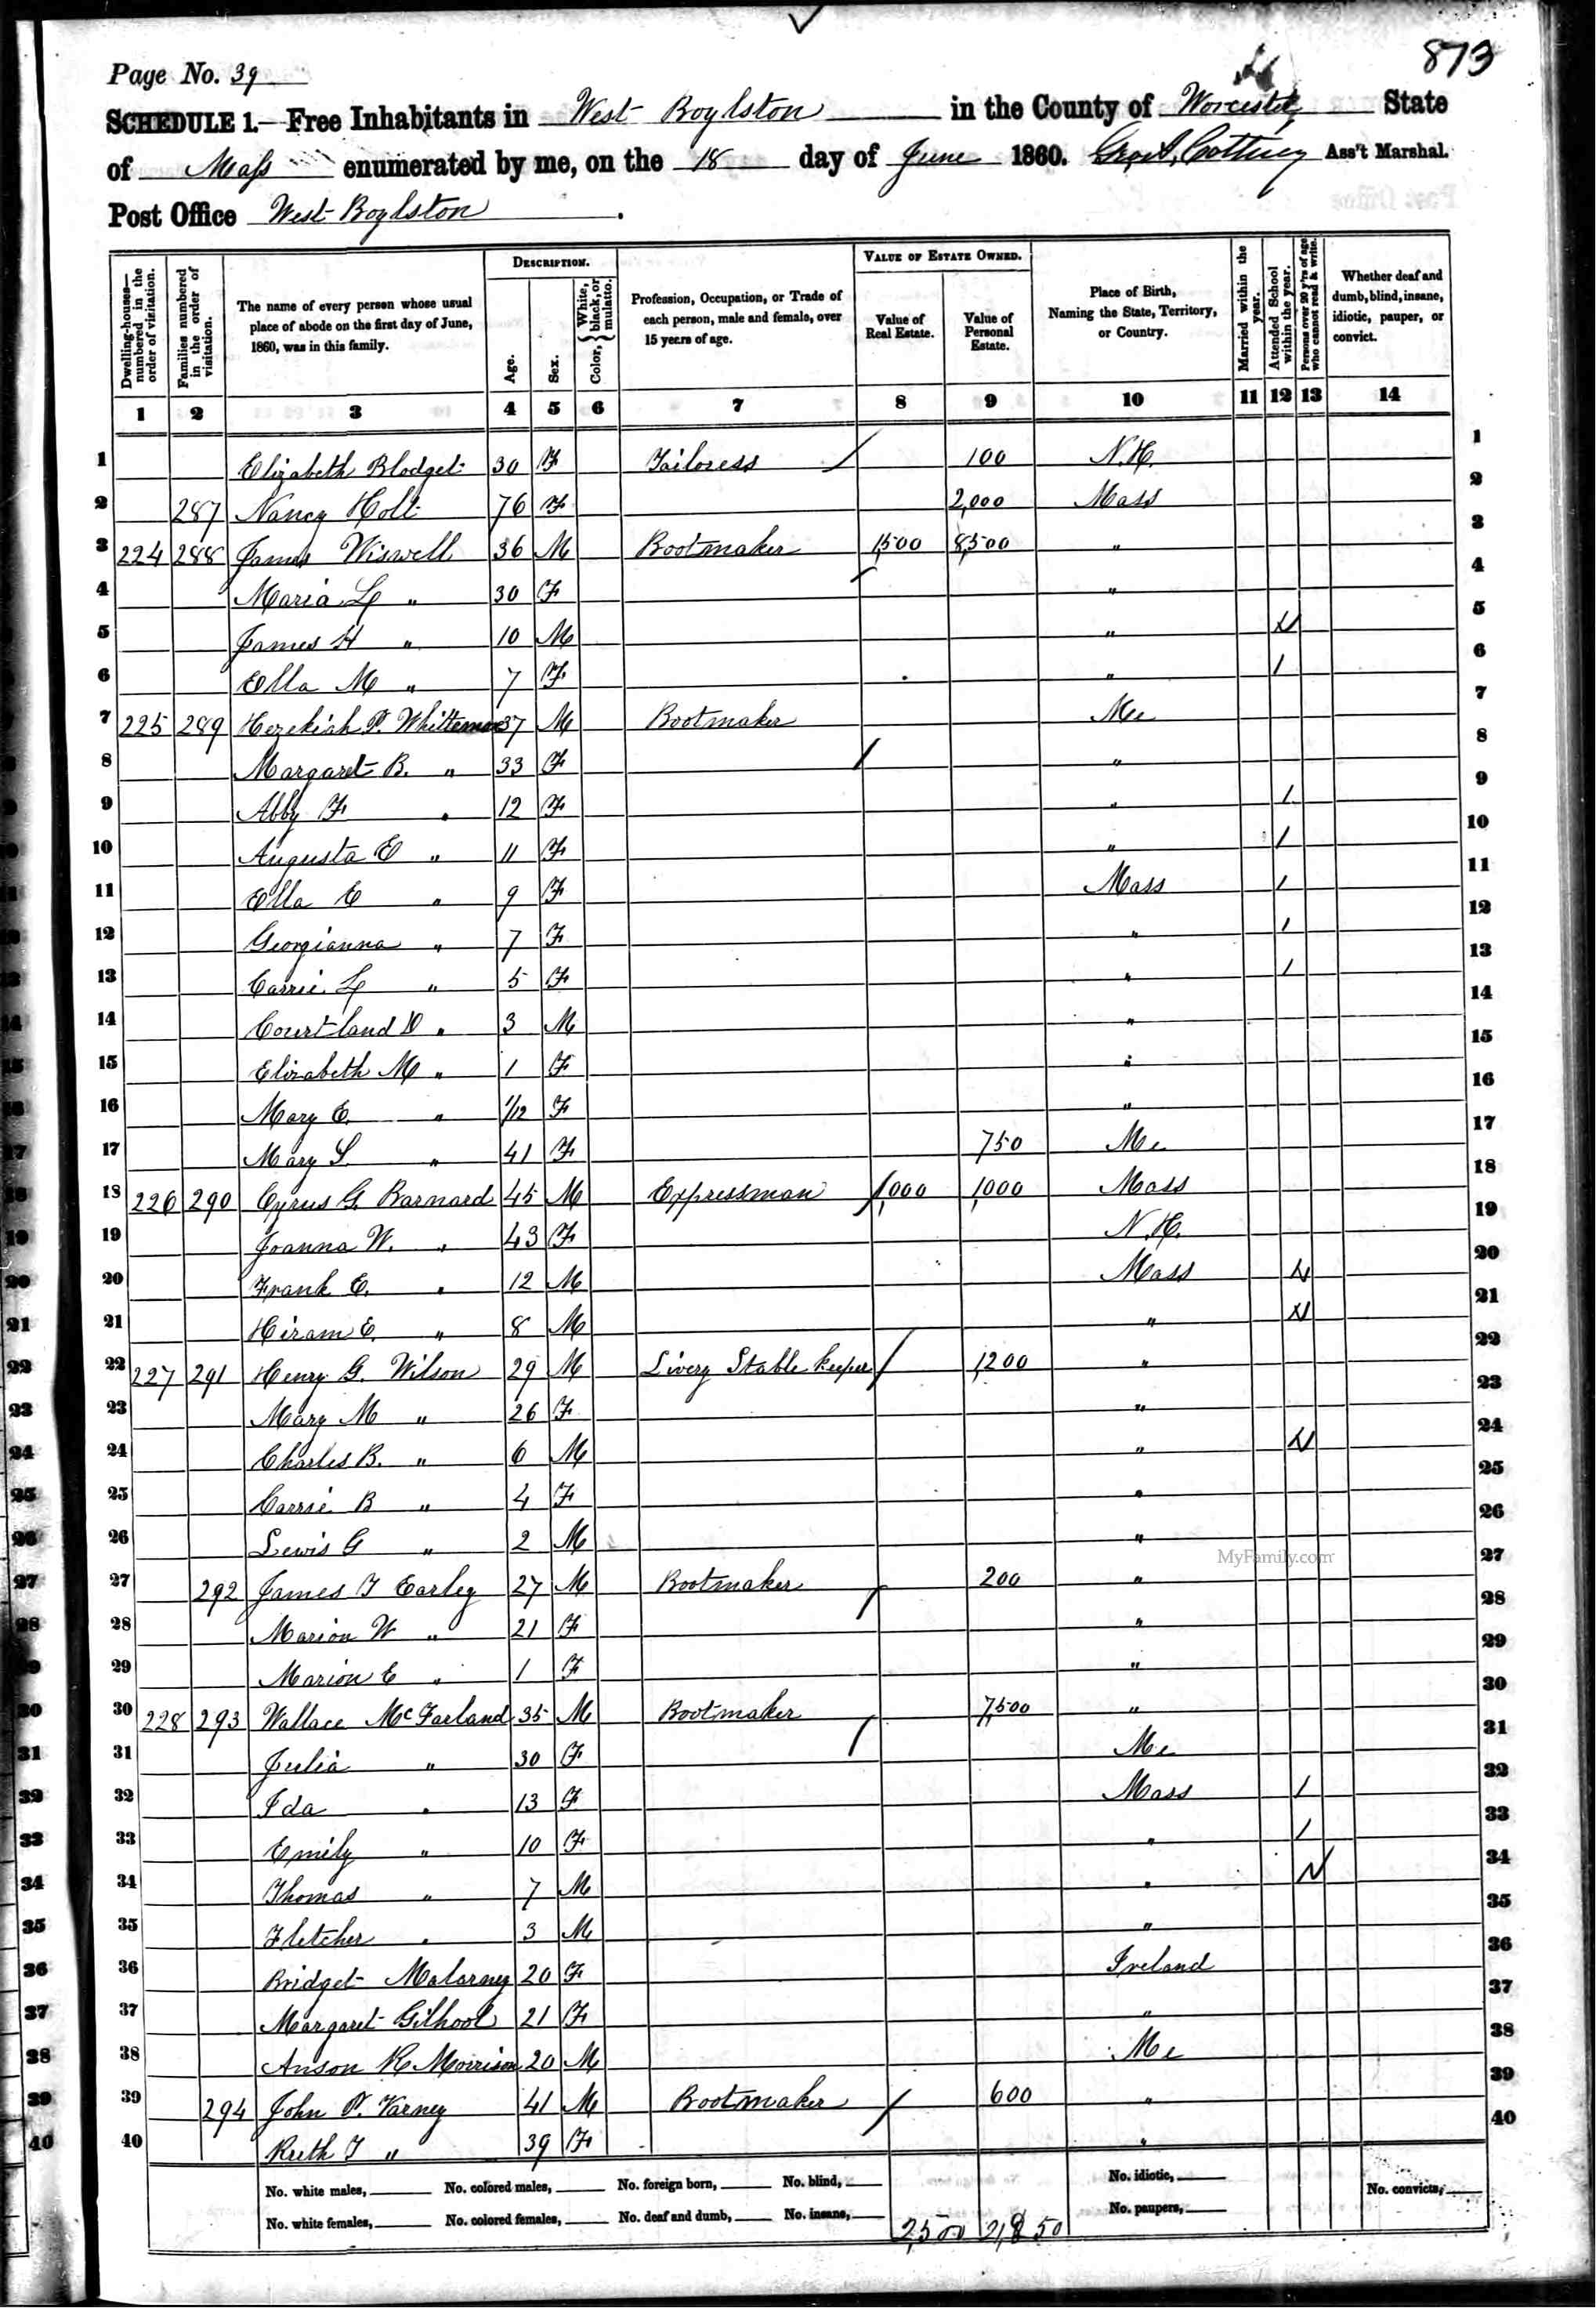 873
Page No. 39
SCHEDULE 1.—Free Inhabitants in West Boylston in the County of Worcester State
of Mass enumerated by me, on the 18 day of June 1860. Ass't Marshal.
Post Office West Boylston.
Dwelling-houses—numbered in the order of visitation. Families numbered in the order of visitation. The name of every person whose usual place of abode on the first day of June, 1860, was in this family. DESCRIPTION. Age. Sex. Color, { White, black, or mulatto. Profession, Occupation, or Trade of each person, male and female, over 15 years of age. VALUE OF ESTATE OWNED. Value of Real Estate. Value of Personal Estate. Place of Birth, Naming the State, Territory, or Country. Married within the year. Attended School within the year. Persons over 20 y'rs of age who cannot read & write. Whether deaf and dumb, blind, insane, idiotic, pauper, or convict.
1 2 3 4 5 6 7 8 9 10 11 12 13 14
1 Elizabeth Blodget 30 F Tailoress / 100 N.H. 1
2 287 Nancy Holt 76 F 2,000 Mass 2
3 224 288 James Wiswell 36 M Bootmaker 1,500 8,500 " 3
4 Maria L " 30 F / " 4
5 James H " 10 M " 5
6 Ella M " 7 F " / 6
7 225 289 Hezekiah P. Whittemore 37 M Bootmaker Me 7
8 Margaret B. " 33 F / " 8
9 Abby F " 12 F " / 9
10 Augusta E " 11 F " / 10
11 Ella E " 9 F Mass / 11
12 Georgianna " 7 F " / 12
13 Carrie L " 5 F " / 13
14 Courtland D " 3 M " 14
15 Elizabeth M " 1 F " 15
16 Mary E. " 1/12 F " 16
17 Mary S " 41 F 750 Me 17
18 226 290 Cyrus G. Barnard 45 M Expressman / 1,000 1,000 Mass 18
19 Joanna W. " 43 F N.H. 19
20 Frank E. " 12 M Mass 20
21 Hiram E. " 8 M " 21
22 227 291 Henry G. Wilson 29 M Livery Stable keeper / 1,200 " 22
23 Mary M " 26 F " 23
24 Charles B. " 6 M " 24
25 Carrie B " 4 F " 25
26 Lewis G " 2 M " 26
MyFamily.com
27 292 James T Earley 27 M Bootmaker / 200 " 27
28 Marion W " 21 F " 28
29 Marion E " 1 F " 29
30 228 293 Wallace McFarland 35 M Bootmaker 7,500 " 30
31 Julia " 30 F / Me 31
32 Ida " 13 F Mass / 32
33 Emily " 10 F " / 33
34 Thomas " 7 M " 34
35 Fletcher " 3 M " 35
36 Bridget Malarney 20 F Ireland 36
37 Margaret Gilhool 21 F " 37
38 Anson K Morrison 20 M Me 38
39 294 John P. Varney 41 M Bootmaker / 600 " 39
40 Ruth T " 39 F " 40
No. white males, No. colored males, No. foreign born, No. blind, No. idiotic, No. convicts,
No. white females, No. colored females, No. deaf and dumb, No. insane, 2,500 No. paupers,